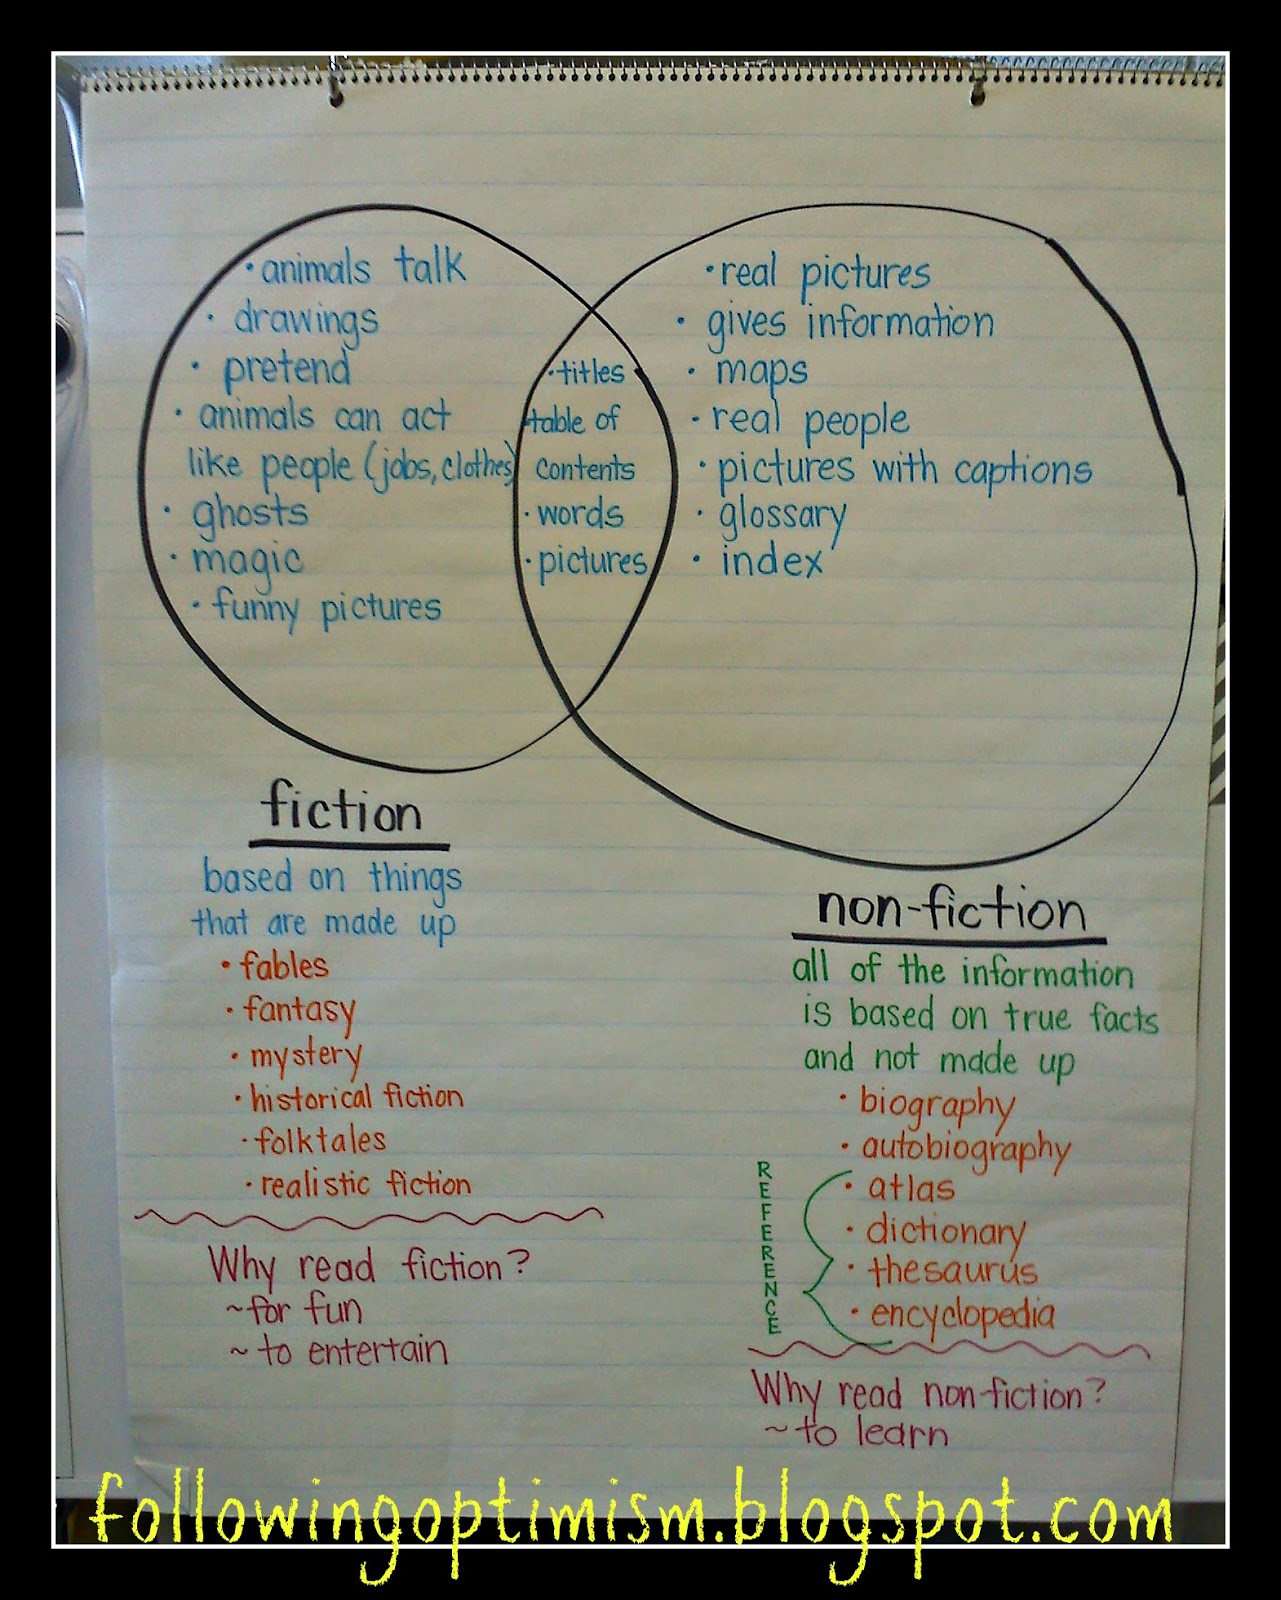 · animals talk
· drawings
· pretend
· animals can act
like people (jobs, clothes)
· ghosts
· magic
· funny pictures
· titles
· table of
contents
· words
· pictures
· real pictures
· gives information
· maps
· real people
· pictures with captions
· glossary
· index
fiction
based on things
that are made up
· fables
· fantasy
· mystery
· historical fiction
· folktales
· realistic fiction
Why read fiction?
~for fun
~ to entertain
non-fiction
all of the information
is based on true facts
and not made up
· biography
· autobiography
REFERENCE
· atlas
· dictionary
· thesaurus
· encyclopedia
Why read non-fiction?
~to learn
followingoptimism.blogspot.com